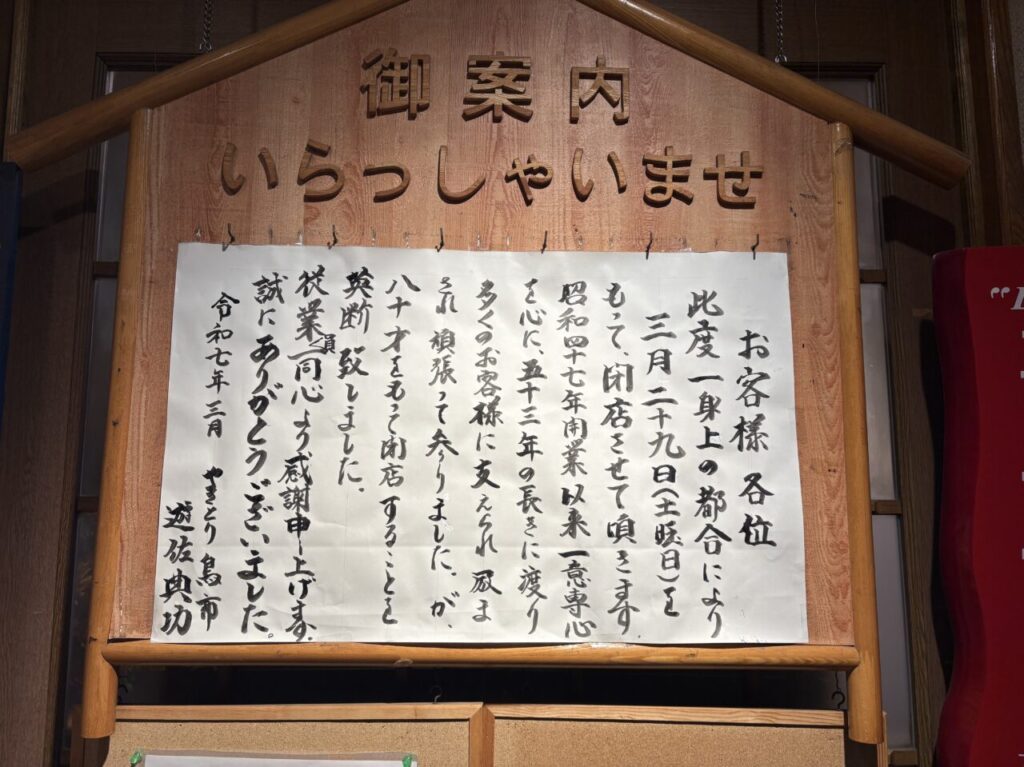 御案内
いらっしゃいませ
お客様 各位
此度 一身上の都合により
三月二十九日(土曜日)を
もって、閉店させて頂きます
昭和四十七年開業以来 一意専心
を心に、五十三年の長きに渡り
多くのお客様に支えられ 励ま
され 頑張って参りました。が、
八十才をもって閉店することを
英断 致しました。
従業員一同心より感謝申し上げます。
誠にありがとうございました。
令和七年 三月 やきとり 鳥市
遊佐典功